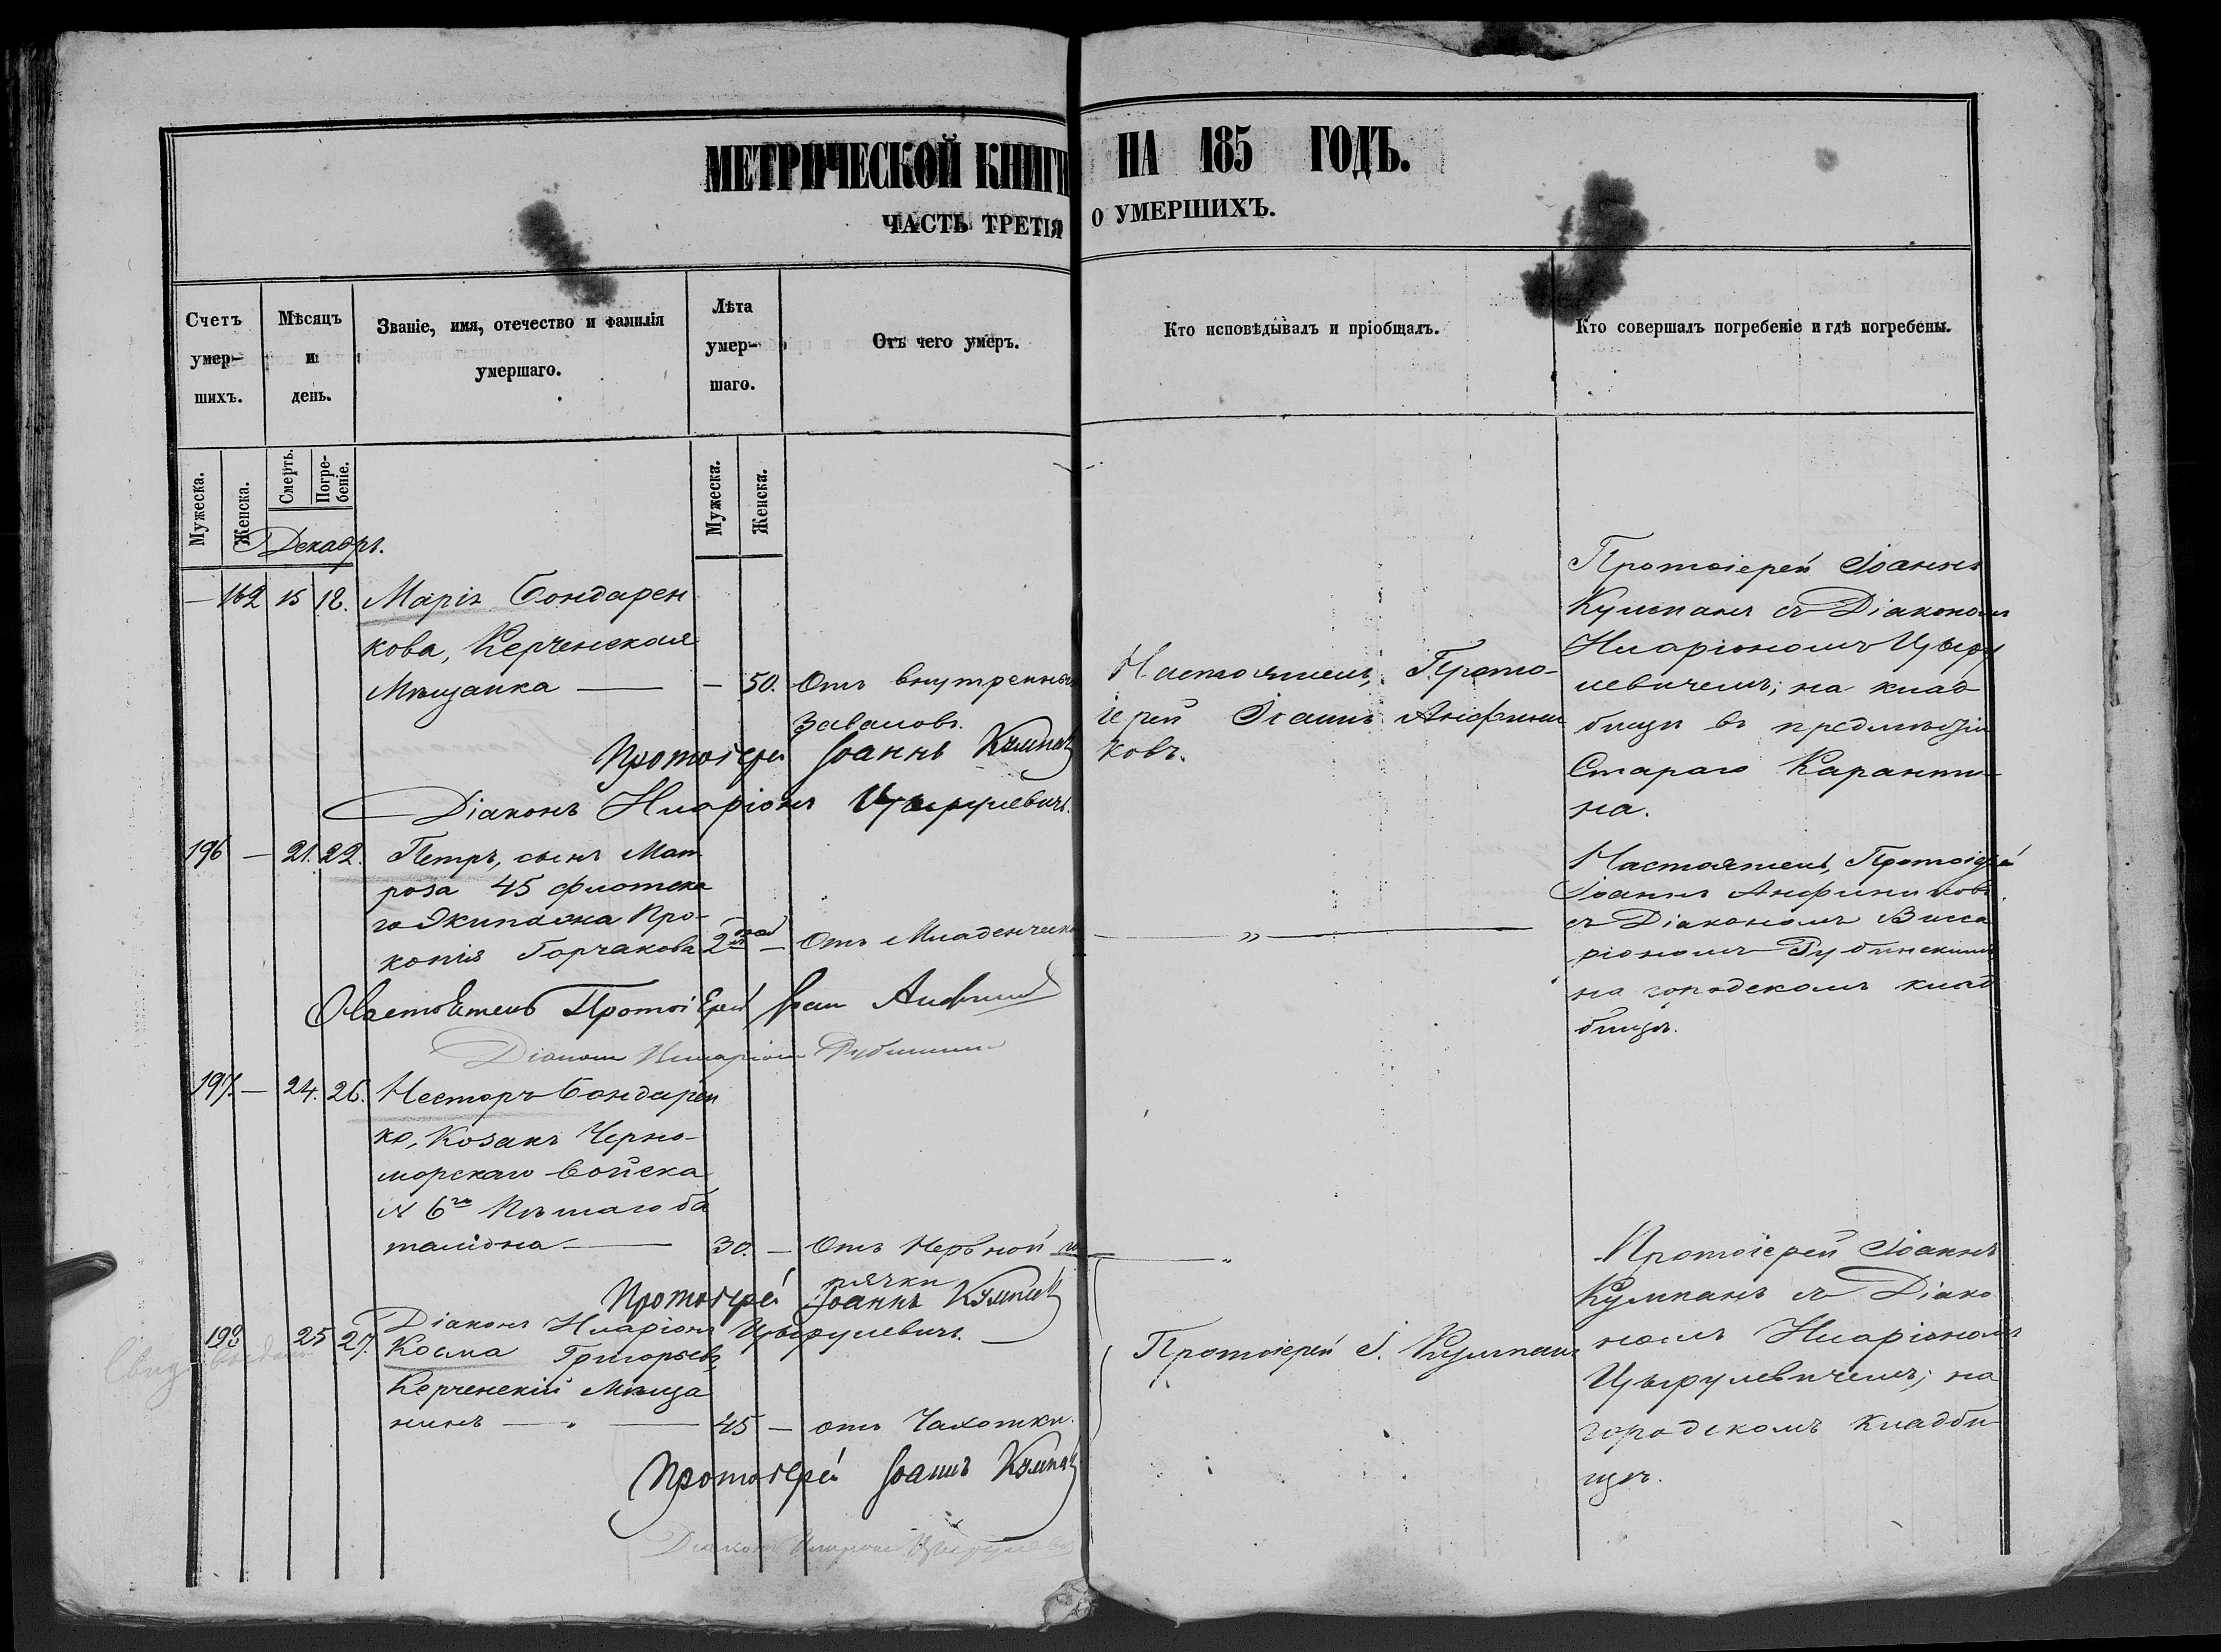 МЕТРИЧЕСКОЙ КНИГИ НА 185 ГОДЪ.
ЧАСТЬ ТРЕТІЯ О УМЕРШИХЪ.
Счетъ умер-шихъ.
Мѣсяцъ и день.
Званіе, имя, отечество и фамилія умершаго.
Лѣта умер-шаго.
Отъ чего умеръ.
Кто исповѣдывалъ и пріобщалъ.
Кто совершалъ погребеніе и гдѣ погребены.
Мужеска.
Женска.
Смерть.
Погре-беніе.
Мужеска.
Женска.
Декабрь.
— 162 15 18. Марія Бондарен
кова, Керченская
Мѣщанка — — 50. Отъ внутренныхъ
заваловъ.
Настоятель, Прото-
іерей Іоаннъ Анфини
ковъ.
Протоіерей Іоаннъ
Кумпанъ съ Діакономъ
Иларіономъ Цыру
левичемъ; на клад
бищѣ въ предмѣстіи
Стараго Каранти-
на.
Протоіерей Іоаннъ Кумпанъ
Діаконъ Иларіонъ Цырулевичъ.
196 — 21. 22. Петръ, сынъ Мат
роза 45 флотска
го Экипажа Про-
копія Горчакова 2 — Отъ Младенческой
— „ —
Настоятель, Протоіерей
Іоаннъ Анфиниковъ
съ Діакономъ Висса
ріономъ Рубинскимъ
на городскомъ клад
бищѣ.
Настоятель Протоіерей Іоан
Діаконъ
197. — 24. 26. Несторъ Бондарен
ко, Козакъ Черно-
морскаго Войска
№ 6го Пѣшаго ба
таліона — 30. — Отъ Нервной го
рячки
— „
Протоіерей Іоаннъ
Кумпанъ съ Діако
номъ Иларіономъ
Цырулевичемъ; на
городскомъ кладби
щѣ.
Протоіерей Іоаннъ Кумпанъ
Діаконъ Иларіонъ Цырулевичъ. —
198 25 27. Косма Григорьевъ,
Керченскій Мѣща
нинъ — 45 — отъ Чахотки.
Протоіерей І. Кумпанъ
Протоіерей Іоаннъ Кумпанъ
Діаконъ Иларіонъ Цырулевичъ